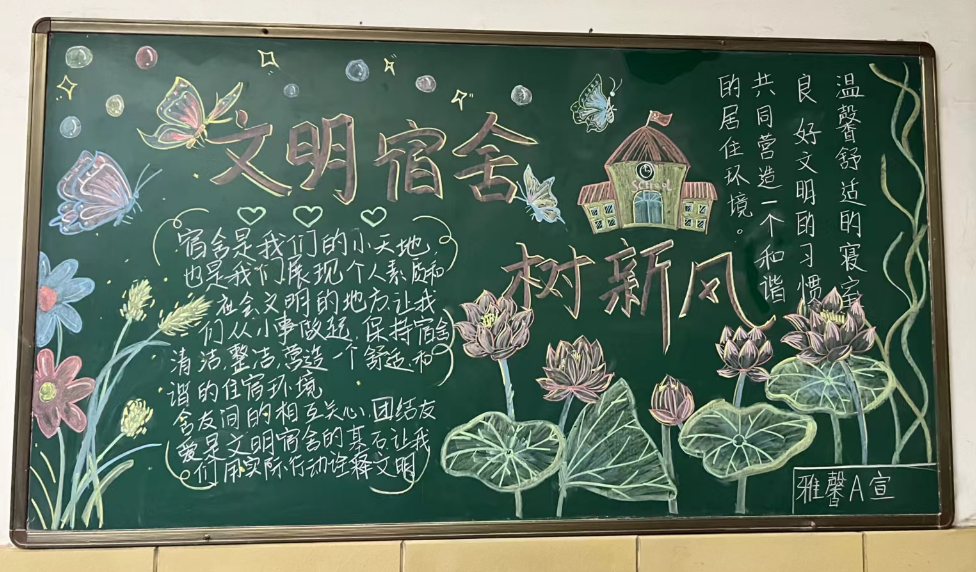 文明宿舍
树新风
宿舍是我们的小天地
也是我们展现个人素质和
社会文明的地方,让我
们从小事做起,保持宿舍
清洁,整洁,营造一个舒适,和
谐的住宿环境
舍友间的相互关心,团结友
爱是文明宿舍的基石让我
们用实际行动诠释文明
School
温馨舒适的寝室
良好文明的习惯
共同营造一个和谐
的居住环境。
雅馨A宣